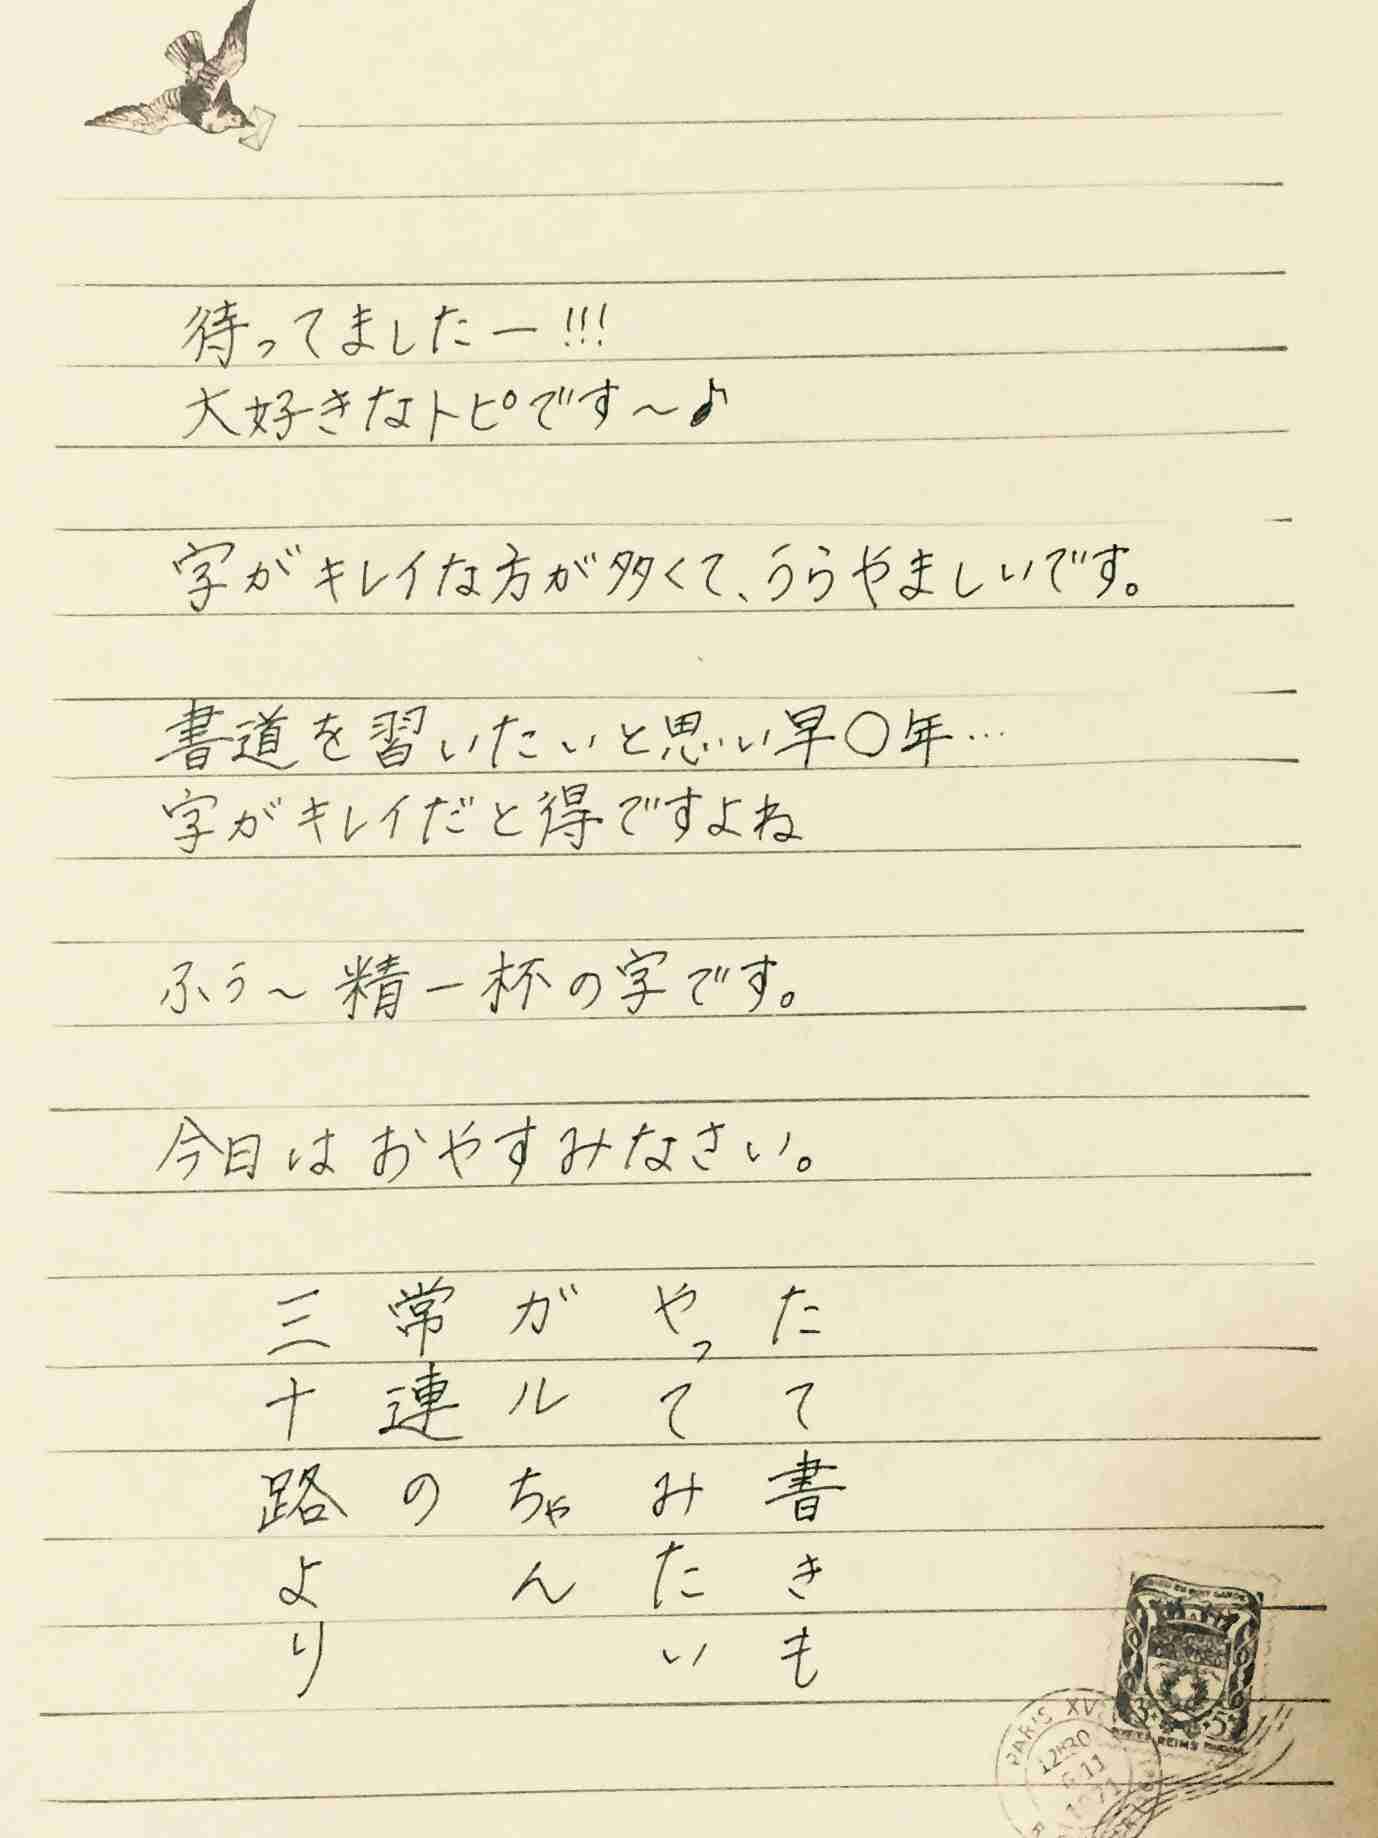 待ってましたー!!!
大好きなトピです〜♪
字がキレイな方が多くて、うらやましいです。
書道を習いたいと思い早〇年…
字がキレイだと得ですよね
ふぅ〜精一杯の字です。
今日はおやすみなさい。
たて書きも
やってみたい
ガルちゃん
常連の
三十路より
PARIS XV
12H30
6 11
1971
3 5
REIMS